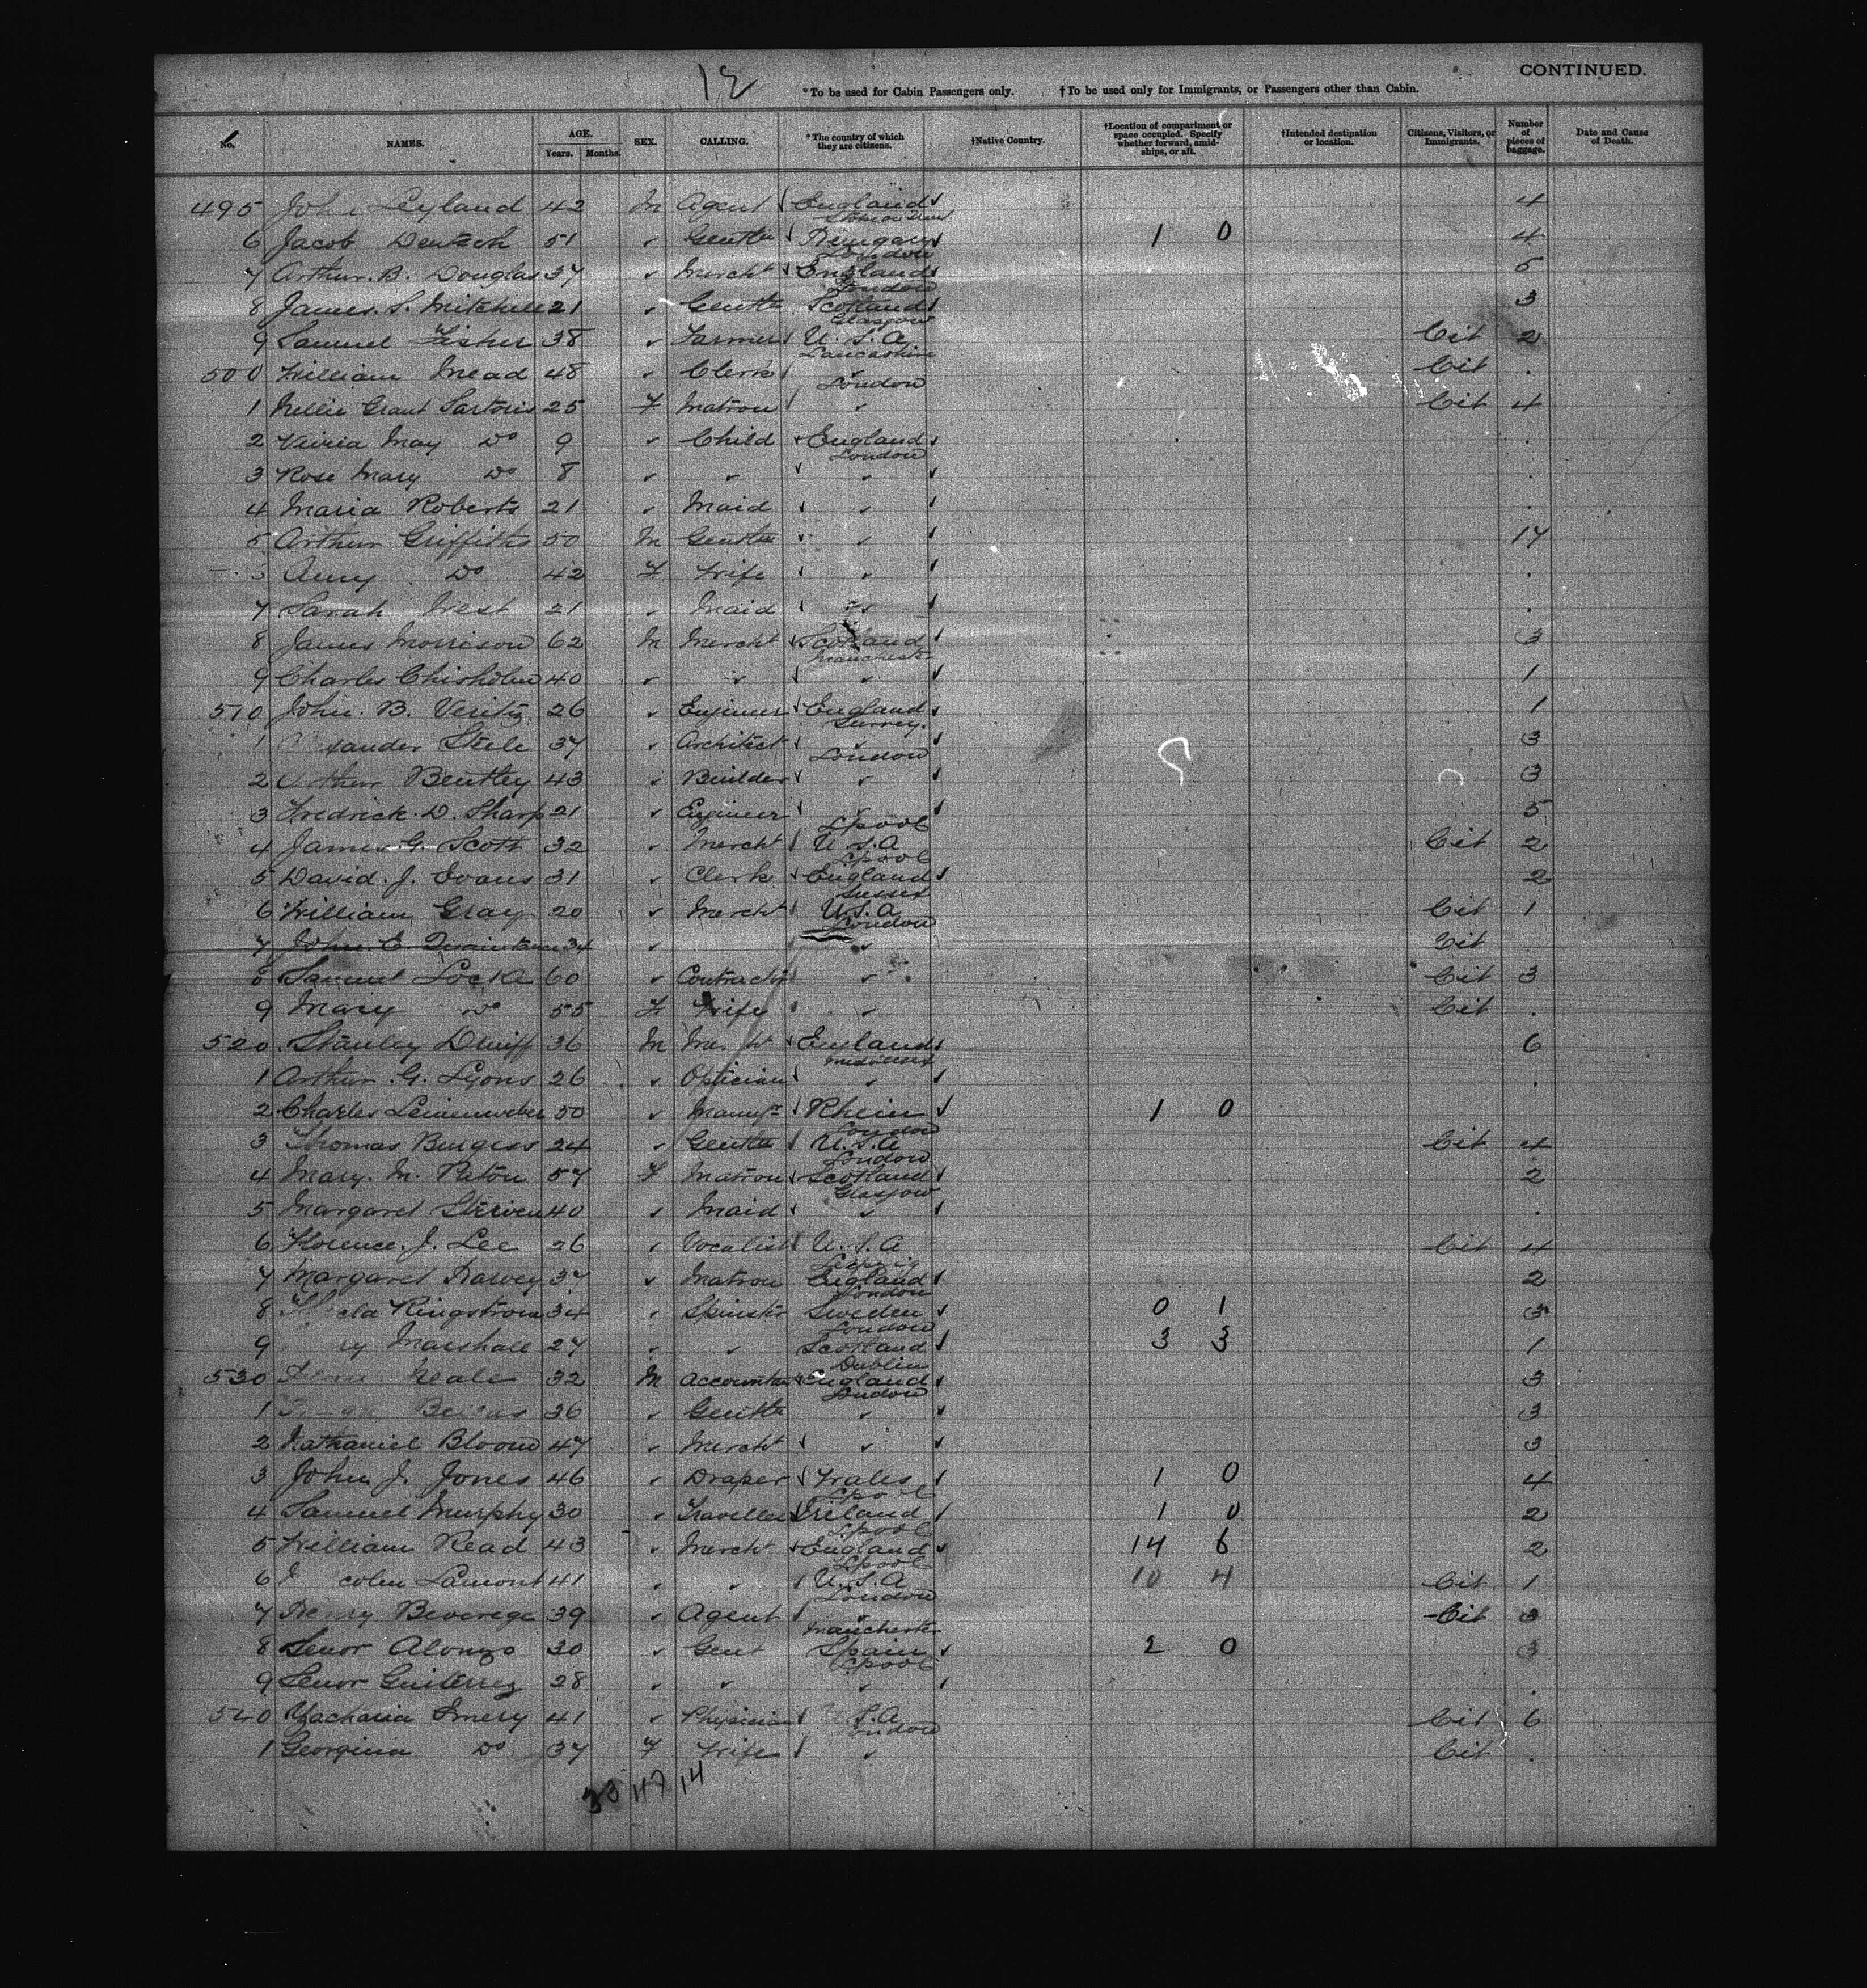 12
CONTINUED.
*To be used for Cabin Passengers only. †To be used only for Immigrants, or Passengers other than Cabin.
No. NAMES. AGE. Years. Months. SEX. CALLING. *The country of which they are citizens. †Native Country. †Location of compartment or space occupied. Specify whether forward, amidships, or aft. †Intended destination or location. Citizens, Visitors, or Immigrants. Number of pieces of baggage. Date and Cause of Death.
495 John Leyland 42 M Agent England 4
6 Jacob Deutsch 51 " Gentln Hungary 1 0 4
London
7 Arthur. B. Douglas 37 " Mercht England 5
London
8 James. S. Mitchell 21 " Gentln Scotland 3
Glasgow
9 Samuel Fisher 38 " Farmer U. S. A Cit 2
Lancashire
500 William Mead 48 " Clerk " Cit .
London
1 Nellie Grant Sartoris 25 F Matron " Cit 4
2 May Do 9 " Child England .
London
3 Rose Mary Do 8 " " " .
4 Maria Roberts 21 " Maid " .
5 Arthur Griffiths 50 M Gentln " 17
Amy Do 42 F Wife " .
7 Sarah West 21 " Maid " .
8 James Morrison 62 M Mercht Scotland 3
Manchester
9 Charles Chisholm 40 " " " 1
510 John. B. Verity 26 " Engineer England 1
Surrey.
1 xander Steele 37 " Architect " 3
London
2 Arthur Bentley 43 " Builder " 3
3 Fredrick. D. Sharp 21 " Engineer " 5
Lpool
4 James G. Scott 32 " Mercht U S. A Cit 2
Lpool
5 David. J. Evans 31 " Clerk England 2
Sussex
6 William Gray 20 " Mercht U.S.A Cit 1
London
7 John E. 34 " " Cit .
8 Samuel Locke 60 " Contractor " Cit 3
9 Mary Do 55 F Wife " Cit .
520 Stanley Druiff 36 M Mercht England 6
Middlesex
1 Arthur. G. Lyons 26 " Optician " .
2 Charles Leinenweber 50 " Manufr Rhein 1 0
London
3 Thomas Burgess 24 " Gentln U.S.A Cit 4
London
4 Mary. M. Paton 57 F Matron Scotland 2
Glasgow
5 Margaret Steiven 40 " Maid " .
6 Florence. J. Lee 26 " Vocalist U. S. A Cit 4
Leipzig
7 Margaret Harvey 37 " Matron England 2
London
8 Ringstrom 34 " Spinster Sweden 0 1 3
London
9 ry Marshall 27 " " Scotland 3 3 1
Dublin
530 Neale 32 M Accountn England 3
London
1 36 " Gentln " 3
2 Nathaniel Bloom 47 " Mercht " 3
3 John J. Jones 46 " Draper Wales 1 0 4
Lpool
4 Samuel Murphy 30 " Traveller Ireland 1 0 2
Lpool
5 William Read 43 " Mercht England 14 6 2
Lpool
6 colm Lamont 41 " " U.S.A 10 4 Cit 1
London
7 Henry Beverege 39 " Agent " Cit 3
Manchester
8 Senor Alonzo 30 " Gent Spain 2 0 3
Lpool
9 Senor Guiterrez 28 " " " .
540 Zacharia Emery 41 " Physician U S. A Cit 6
London
1 Georgina Do 37 F Wife " Cit .
33 47 14